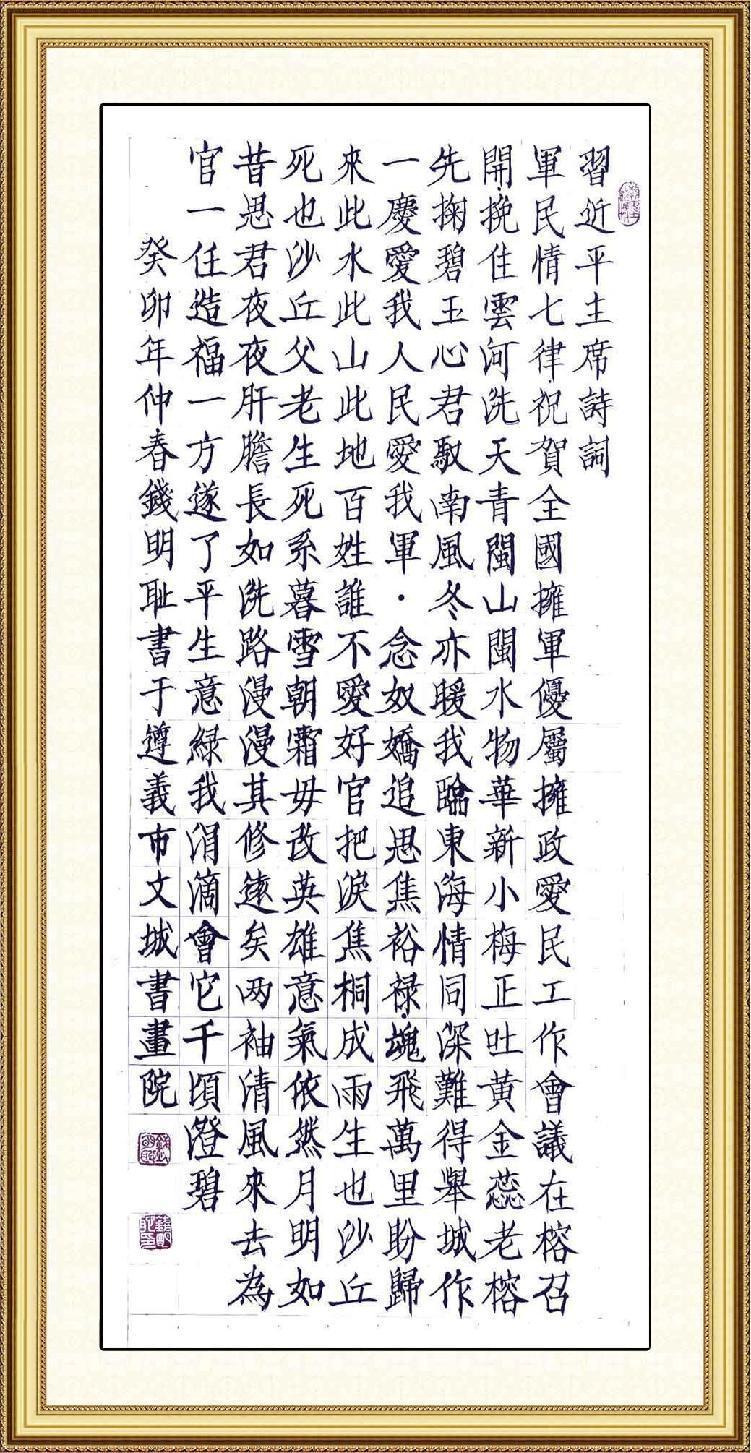 習近平主席詩詞
軍民情七律祝賀全國擁軍優屬擁政愛民工作會議在榕召
開·挽住雲河洗天青閩山閩水物華新小梅正吐黃金蕊老榕
先掬碧玉心君馭南風冬亦暖我臨東海情同深難得舉城作
一慶愛我人民愛我軍·念奴嬌追思焦裕禄·魂飛萬里盼歸
來此水此山此地百姓誰不愛好官把淚焦桐成雨生也沙丘
死也沙丘父老生死系暮雪朝霜毋改英雄意氣依然月明如
昔思君夜夜肝膽長如洗路漫漫其修遠矣两袖清風來去為
官一任造福一方遂了平生意綠我涓滴會它千頃澄碧
癸卯年仲春錢明耻書于遵義市文城書畫院